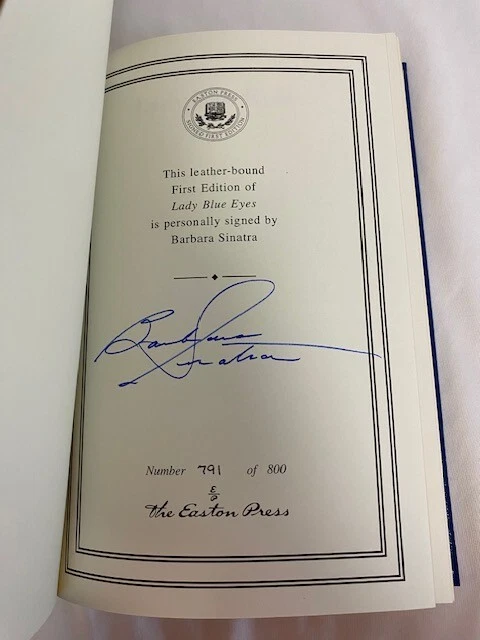 EASTON PRESS
SIGNED FIRST EDITION
This leather-bound
First Edition of
Lady Blue Eyes
is personally signed by
Barbara Sinatra
Barbara
Sinatra
Number 791 of 800
E/P
The Easton Press